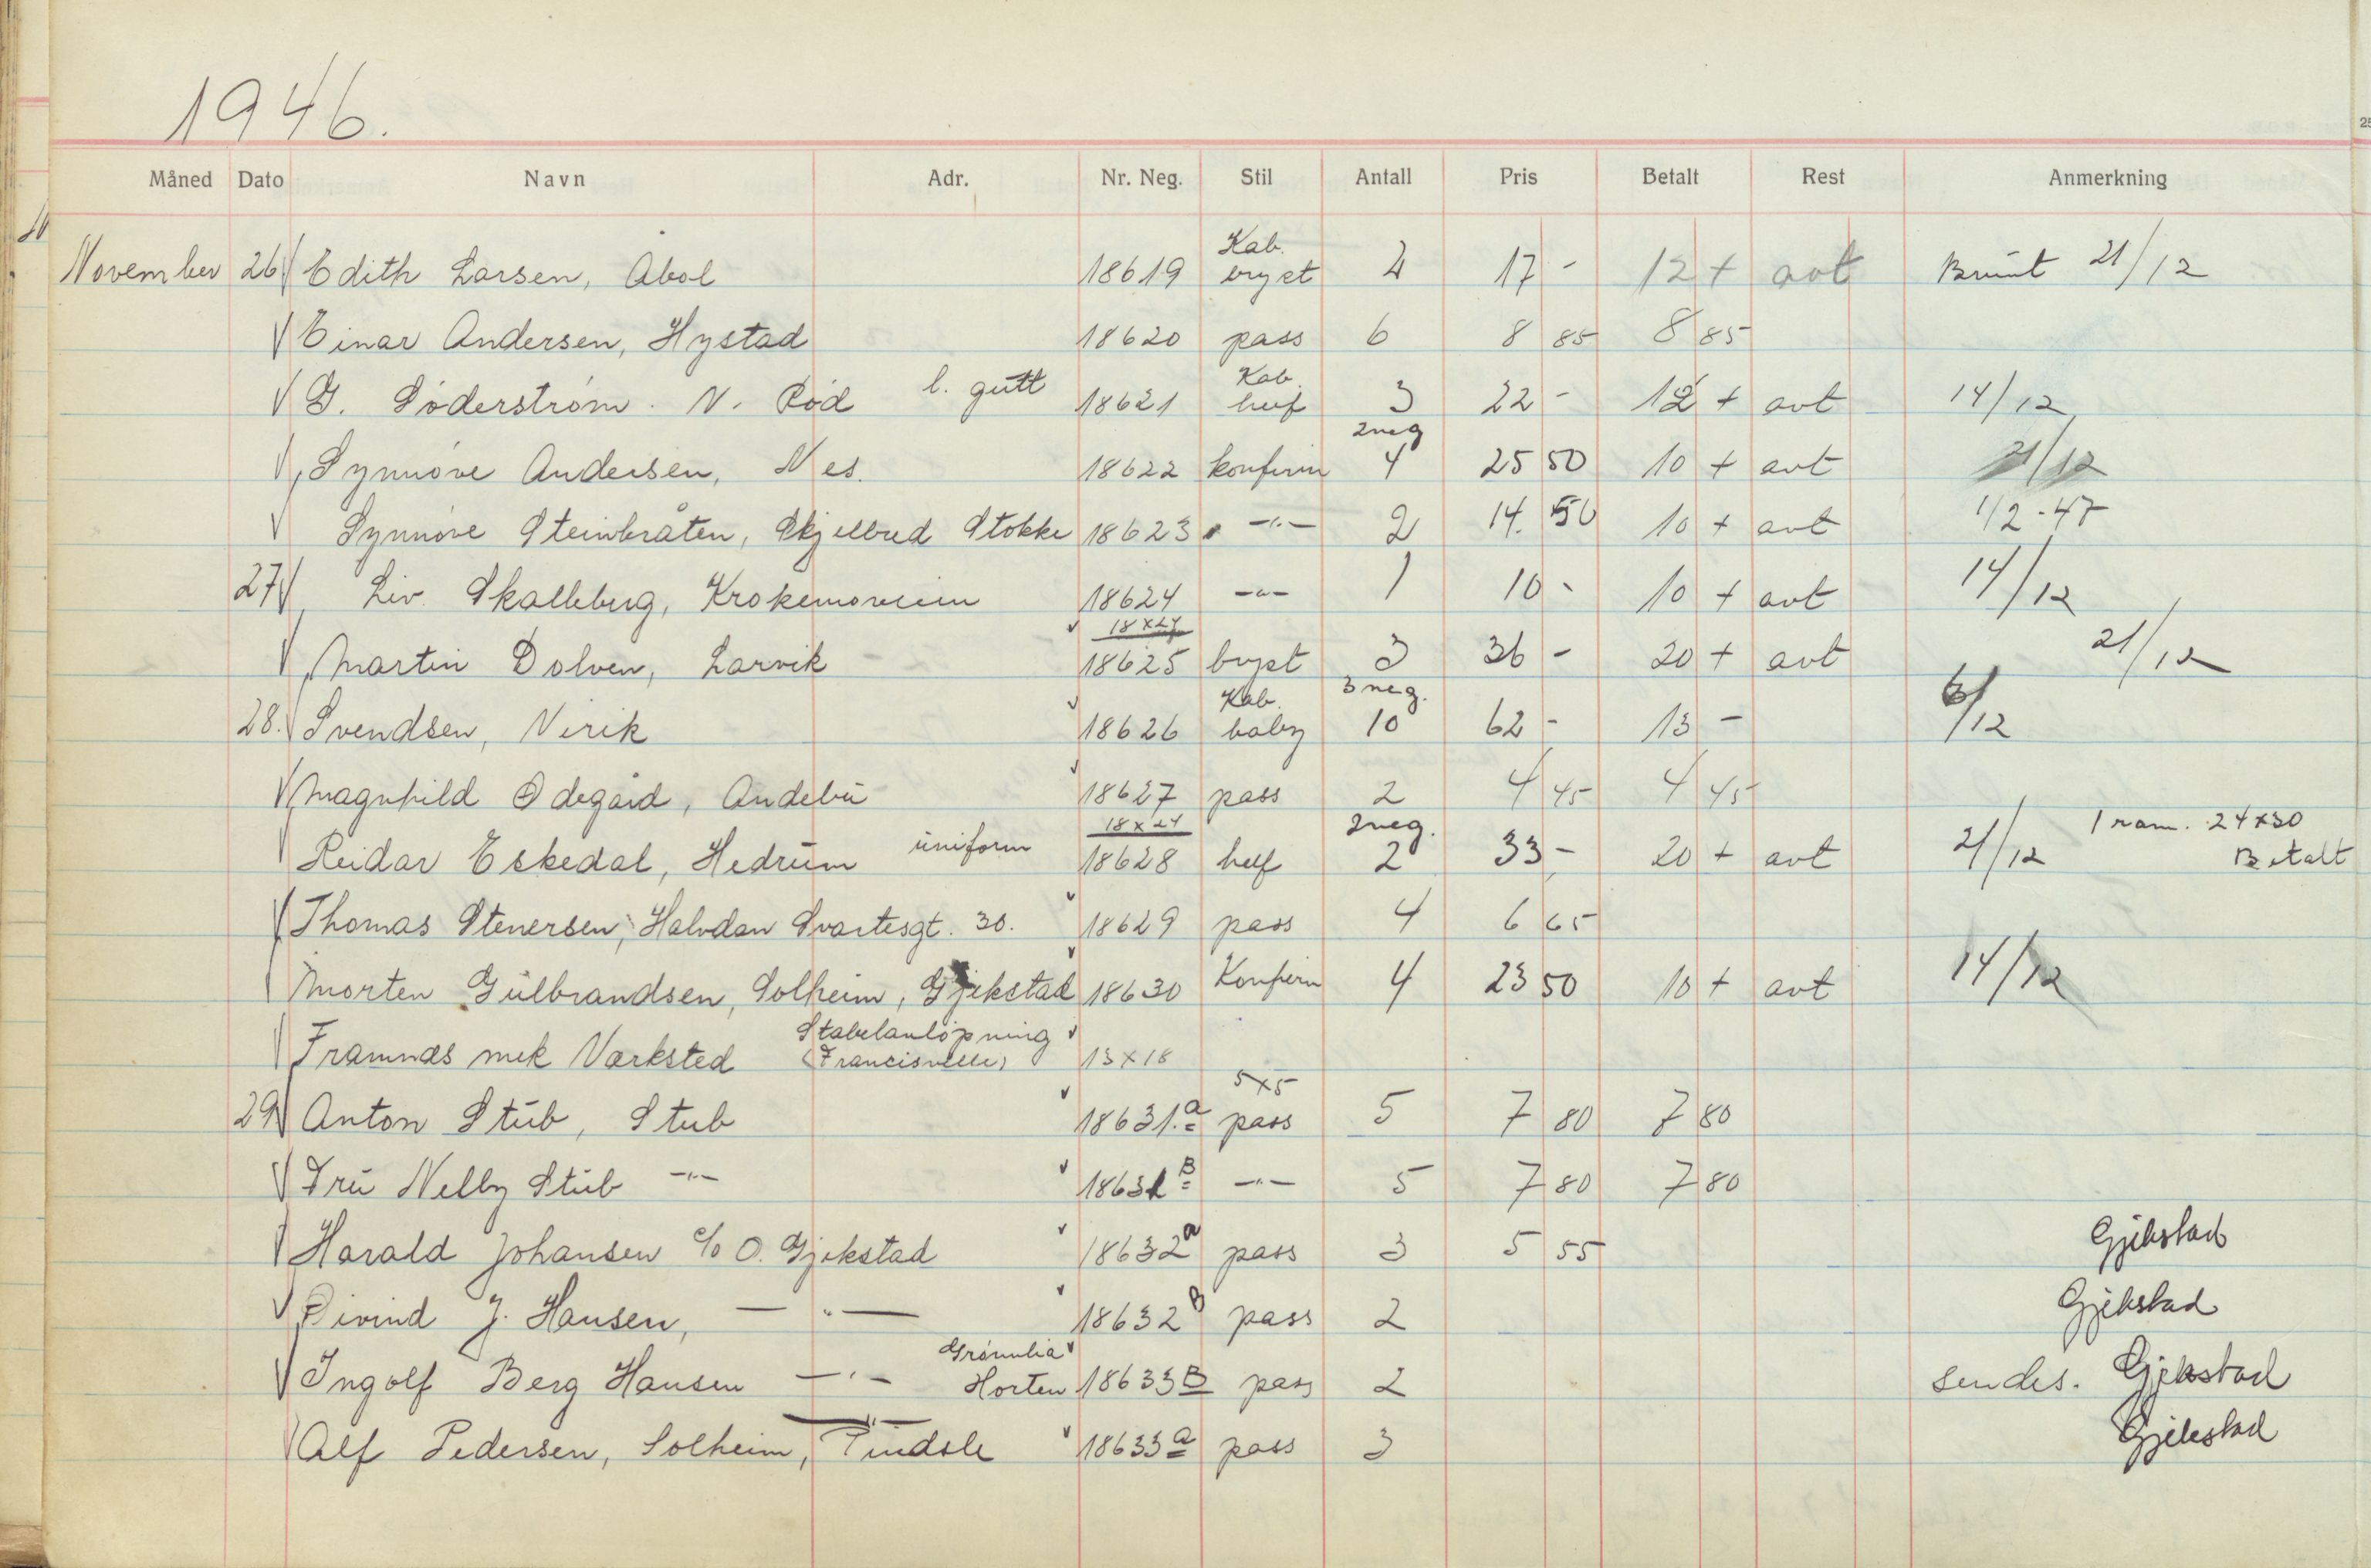 1946.
Måned Dato Navn Adr. Nr. Neg. Stil Antall Pris Betalt Rest Anmerkning
November 26 Edith Larsen, Abol 18619 Kab. bryst 4 17 - 12 + avt Brunt 21/12
Einar Andersen, Hystad 18620 pass 6 8 85 8 85
G. Söderström. N. Rød l. gutt 18621 Kab. helf 3 22 - 12 + avt 14/12
Synnøve Andersen, Nes. 18622 konfirm 2 neg 4 25 50 10 + avt 21/12
Synnøve Steinbråten, Skjelbred Stokke 18623 -"- 2 14. 50 10 + avt 1/2-47
27 Liv Skalleberg, 18624 -"- 1 10 - 10 + avt 14/12
Martin Dolven, Larvik 18x24 18625 bryst 3 36 - 20 + avt 21/12
28. Svendsen, Virik 18626 Kab. baby 3 neg. 10 62 - 13 - 6/12
Magnhild Ødegård, Andebu 18627 pass 2 4 45 4 45
Reidar Eskedal, Hedrum uniform 18x24 18628 helf 2 neg. 2 33 - 20 + avt 21/12 1 ram. 24x30 Betalt
Thomas Stenersen, Halvdan Svartesgt. 30. 18629 pass 4 6 65
Morten Gulbrandsen, Solheim, Gjekstad 18630 Konfirm 4 23 50 10 + avt 14/12
Framnæs mek Værksted Stabelavløpning (Francisville) 13x18
29 Anton Stub, Stub 18631.a 5x5 pass 5 7 80 7 80
Fru Nelly Stub -"- 18631 B -"- 5 7 80 7 80
Harald Johansen c/o O. Gjekstad 18632a pass 3 5 55 Gjekstad
Øivind J. Hansen, -"- 18632B pass 2 Gjekstad
Ingolf Berg Hansen -"- Grønnlia Horten 18633B pass 2 sendes. Gjekstad
Alf Pedersen, Solheim, -"- Pindsle 18633a pass 3 Gjekstad